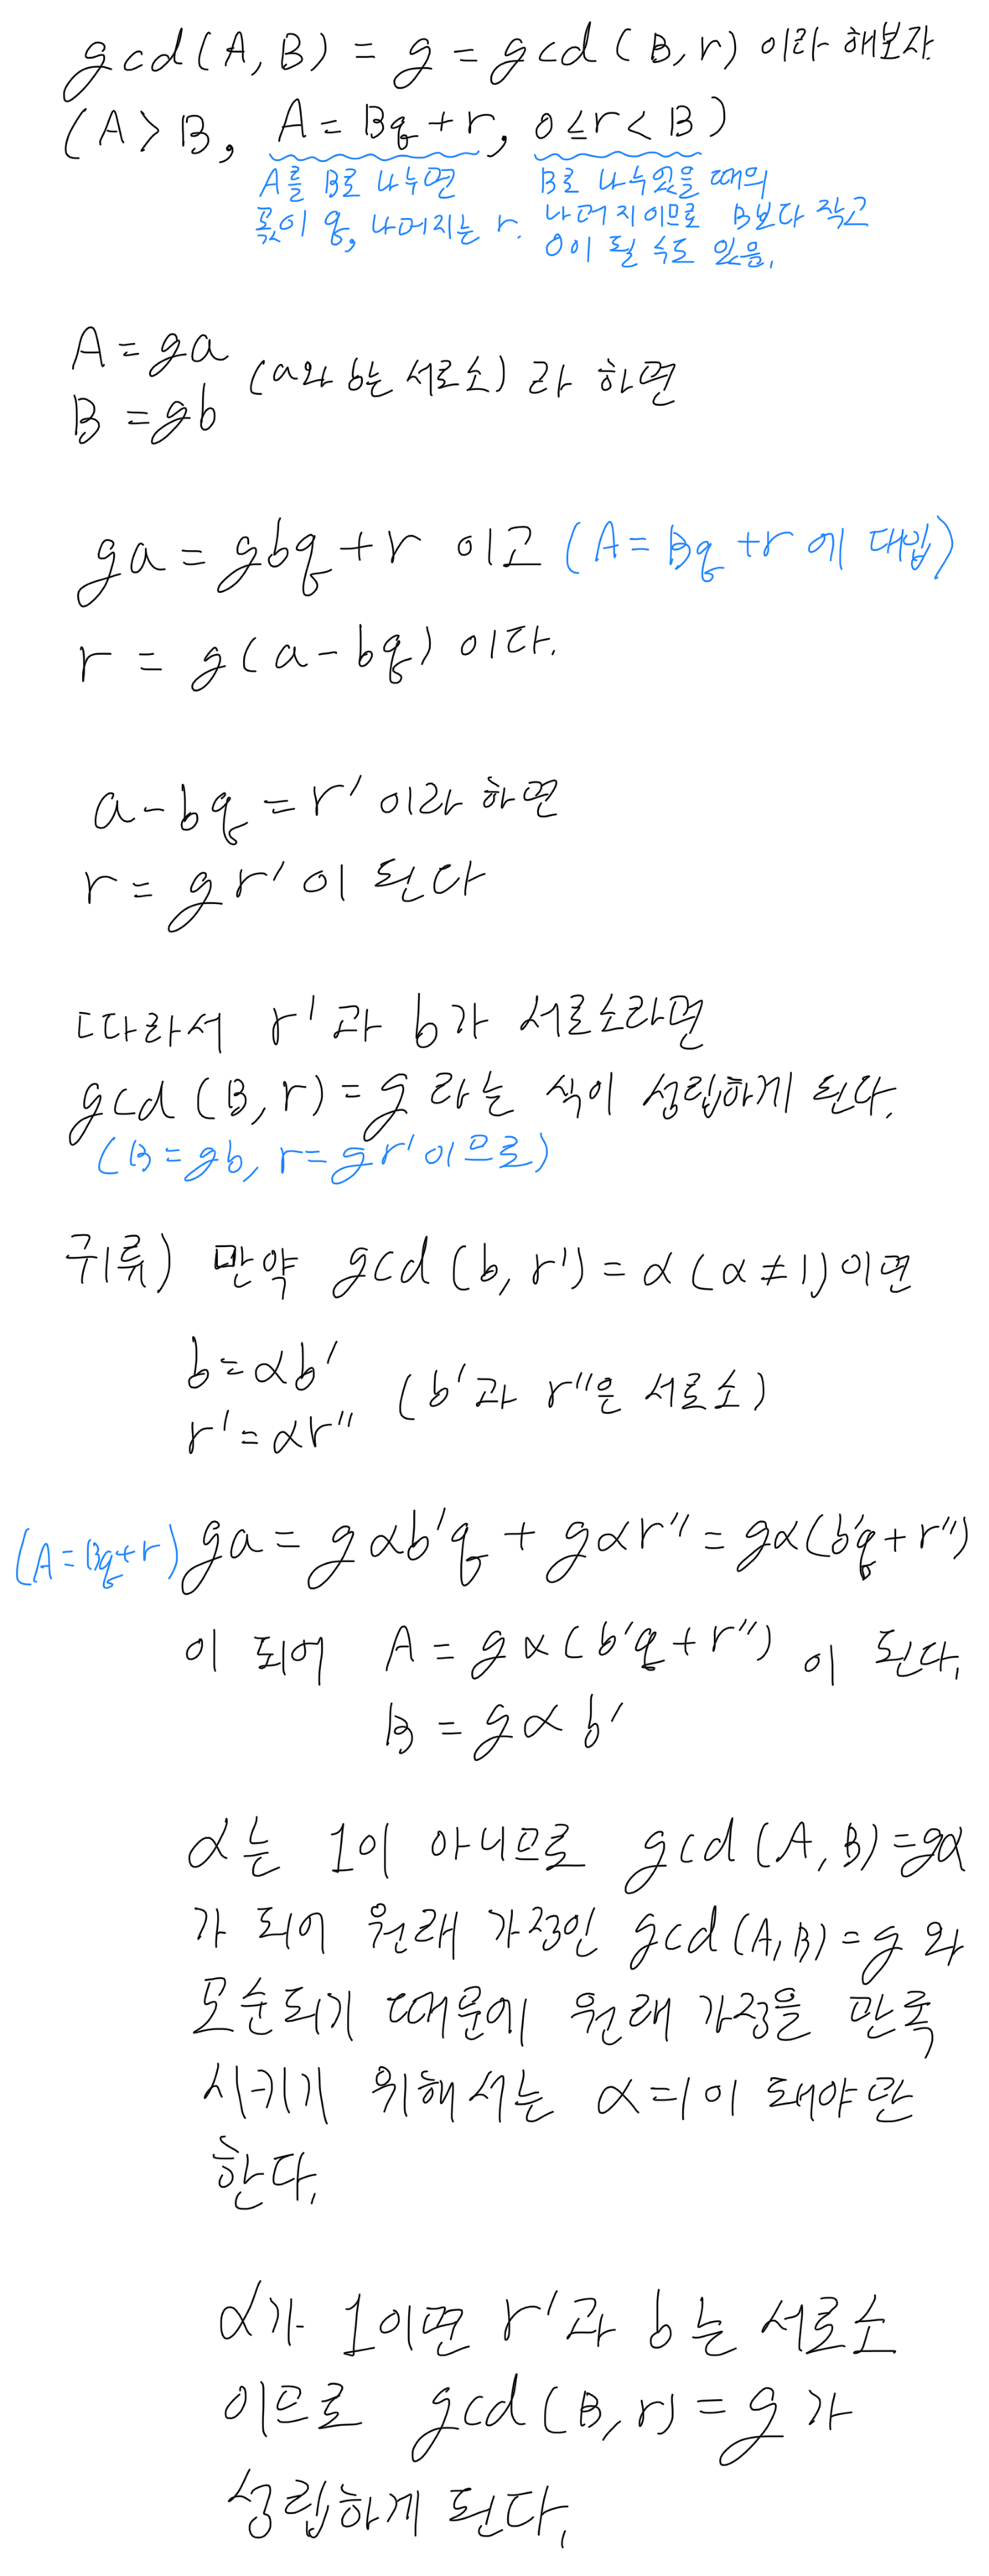 gcd(A, B) = g = gcd(B, r) 이라 해보자.
(A > B, A = Bq + r, 0 ≤ r < B)
A를 B로 나누면 B로 나누었을 때의
몫이 q, 나머지는 r. 나머지이므로 B보다 작고
0이 될 수도 있음.
A = ga
(a와 b는 서로소) 라 하면
B = gb
ga = gbq + r 이고 (A = Bq + r 에 대입)
r = g(a - bq) 이다.
a - bq = r' 이라 하면
r = gr' 이 된다
따라서 r'과 b가 서로소라면
gcd(B, r) = g 라는 식이 성립하게 된다.
(B = gb, r = gr'이므로)
귀류) 만약 gcd(b, r') = α (α ≠ 1)이면
b = αb'
(b'과 r''은 서로소)
r' = αr''
(A = Bq + r) ga = gαb'q + gαr'' = gα(b'q + r'')
이 되어 A = gα(b'q + r'') 이 된다.
B = gαb'
α는 1이 아니므로 gcd(A, B) = gα
가 되어 원래 가정인 gcd(A, B) = g 와
모순되기 때문에 원래 가정을 만족
시키기 위해서는 α = 1이 돼야만
한다.
α가 1이면 r'과 b는 서로소
이므로 gcd(B, r) = g 가
성립하게 된다.